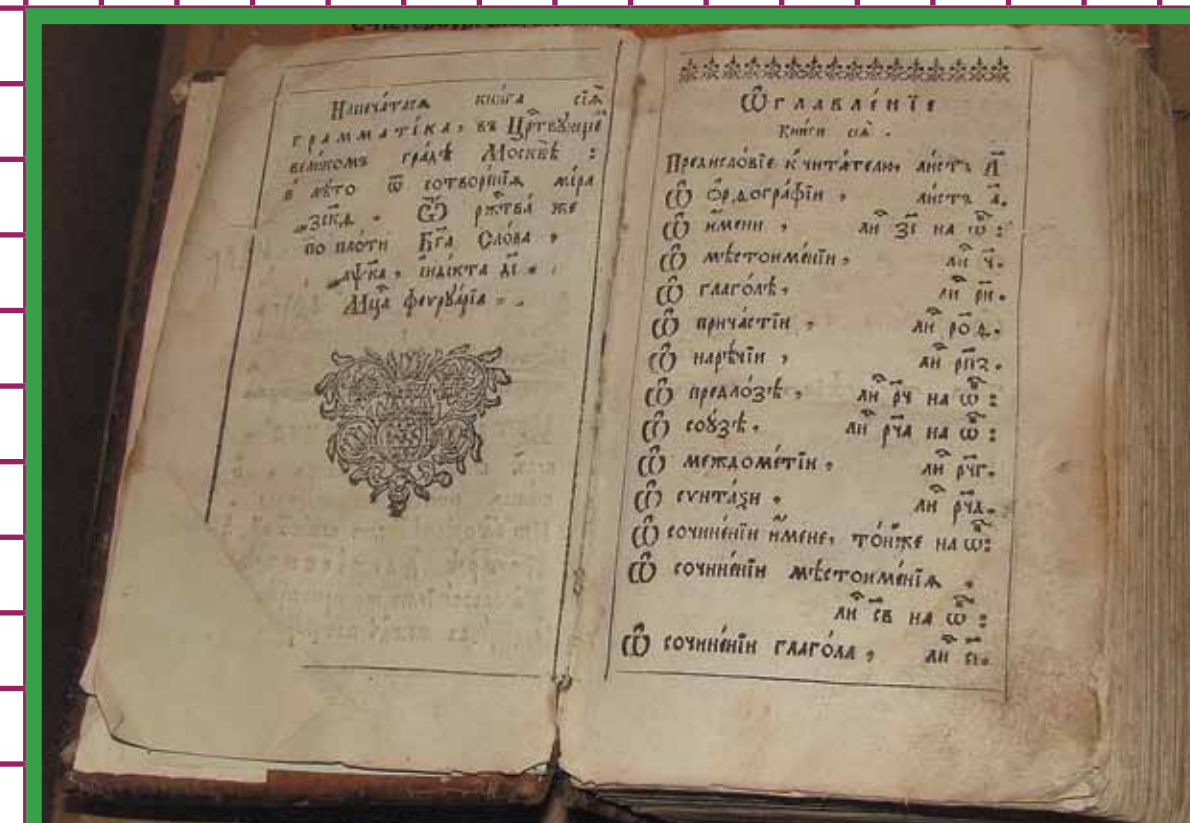 Напеча́тасѧ кни́га сїѧ̀
грамматі́ка, въ Црⷭ҇твꙋ́ющемъ
вели́комъ гра́дѣ Москвѣ̀ :
в лѣ́то ѿ сотворе́нїѧ мі́ра
҂зс҃кд . Ѿ рж҇тва̀ же
по пло́ти Бг҃а Сло́ва ,
҂аѱ҃ка , їнді́кта д҃і .
Мц҇а феврꙋа́рїа .
Ѡ҆главле́нїе
Кни́ги сеѧ̀ .
Предисло́вїе к чита́телю, ли́стъ а҃
Ѡ҆ ѻ҆рѳогра́фїи , ли́стъ а҃.
Ѡ҆ и҆́мени , ли з҃і на ѡ҆б :
Ѡ҆ мѣстоиме́нїи , ли ч҃.
Ѡ҆ глаго́лѣ , ли рн҃.
Ѡ҆ прича́стїи , ли ро҃д.
Ѡ҆ нарѣ́чїи , ли рп҃з.
Ѡ҆ предло́зѣ , ли рч҃ на ѡ҆б :
Ѡ҆ сою́зѣ , ли рч҃а на ѡ҆б :
Ѡ҆ междоме́тїи , ли рч҃г.
Ѡ҆ сѵнта́ѯи , ли рч҃д.
Ѡ҆ сочине́нїи и҆́мене, то́йже на ѡ҆б :
Ѡ҆ сочине́нїи мѣстоиме́нїѧ ,
ли с҃в на ѡ҆б :
Ѡ҆ сочине́нїи глаго́ла , ли с҃і.